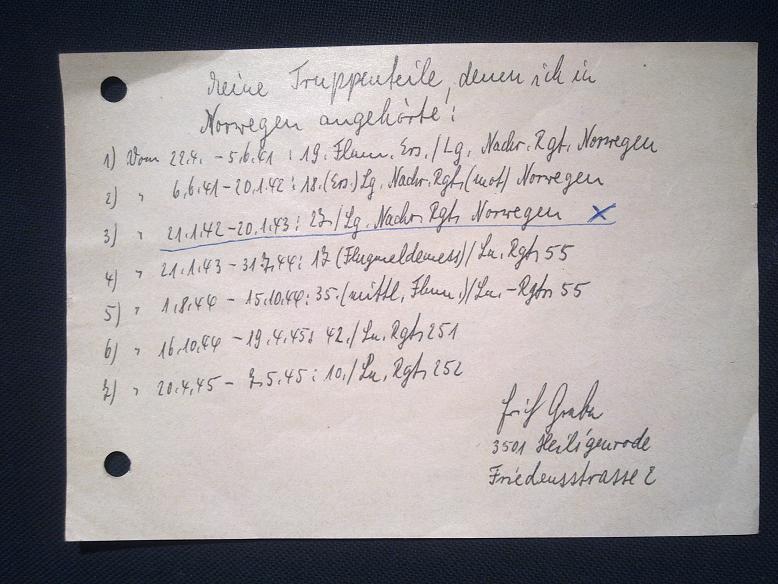 Meine Truppenteile, denen ich in
Norwegen angehörte!
1) Vom 22.4. - 5.6.41 : 19. Flum. Ers./Lg. Nachr. Rgt. Norwegen
2) " 6.6.41-20.1.42: 18.(Ers.)Lg. Nachr. Rgt.(mot) Norwegen
3) " 21.1.42-20.1.43: 27./Lg. Nachr. Rgt. Norwegen X
4) " 21.1.43-31.7.44: 17 (Flugmeldemess)/Ln. Rgt. 55
5) " 1.8.44 - 15.10.44: 35.(mittl. Flum.)/Ln.-Rgt. 55
6) " 16.10.44 - 19.4.45: 42./Ln. Rgt. 251
7) " 20.4.45 - 7.5.45: 10./Ln. Rgt. 252
3501 Heiligenrode
Friedensstrasse 2